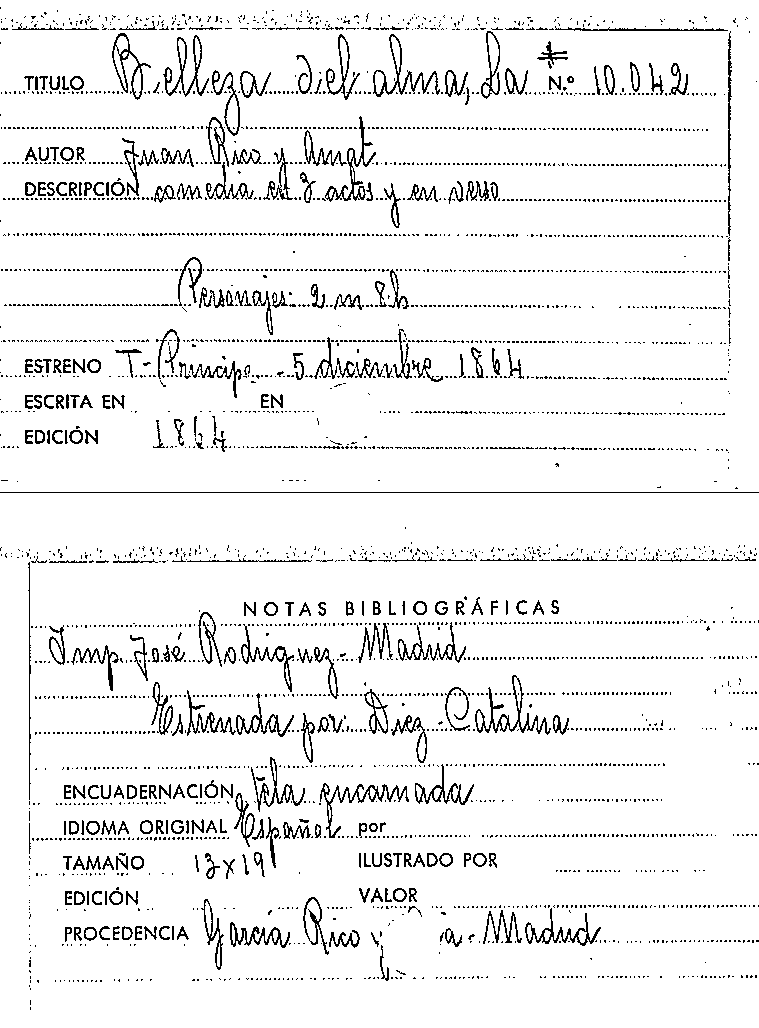 TITULO Belleza del alma, La N.º 10.042
AUTOR Juan Rico y Amat
DESCRIPCIÓN comedia en 3 actos y en verso
Personajes: 2 m 8 h
ESTRENO T- Principe - 5 diciembre 1864
ESCRITA EN EN
EDICIÓN 1864
NOTAS BIBLIOGRÁFICAS
Imp. José Rodriguez - Madrid
Estrenada por: Diez - Catalina
ENCUADERNACIÓN Tela encarnada
IDIOMA ORIGINAL Español por
TAMAÑO 13 x 19 ILUSTRADO POR
EDICIÓN VALOR
PROCEDENCIA Garcia Rico y a - Madrid